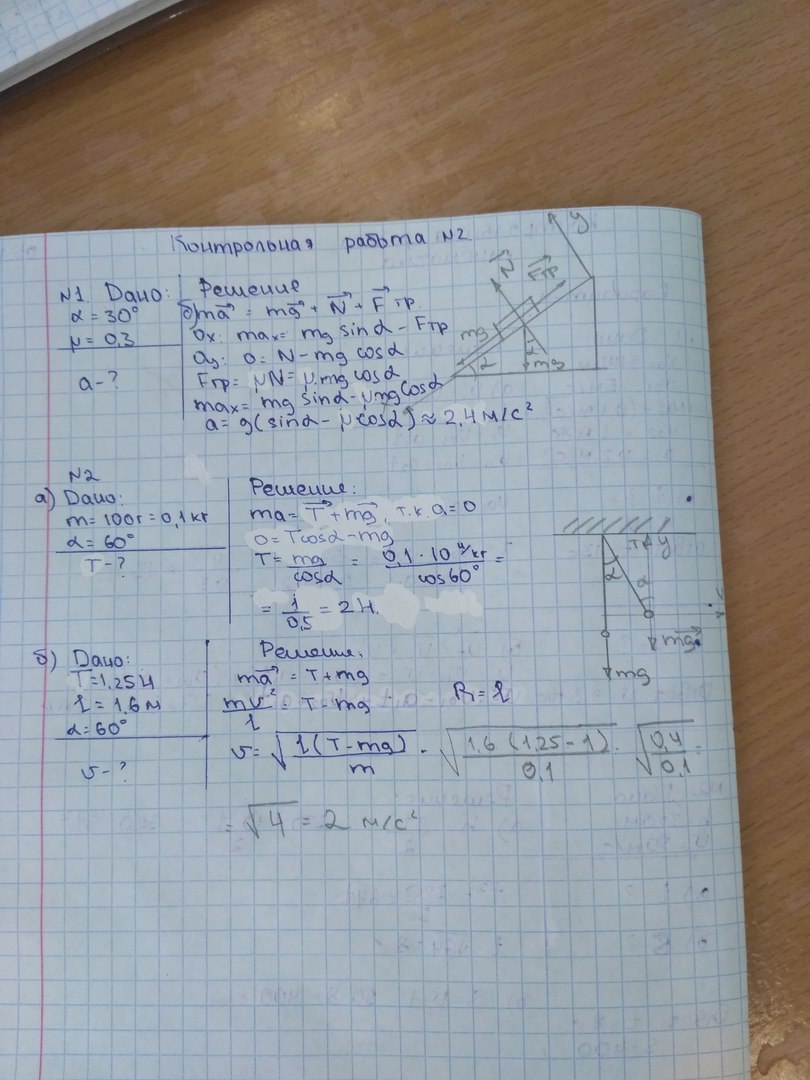 Контрольная работа №2.
№1. Дано:
α = 30°
μ = 0,3
a - ?
Решение
б) ma⃗ = mg⃗ + N⃗ + F⃗тр.
Ox: maₓ = mg sinα - Fтр
Oy: 0 = N - mg cosα
Fтр = μN = μmg cosα
maₓ = mg sinα - μmg cosα
a = g(sinα - μ cosα) ≈ 2,4 м/с²
y
N⃗
Fтр
mg
α
α
mg
№2
а) Дано:
m = 100г = 0,1 кг
α = 60°
T - ?
Решение:
ma = T⃗ + mg⃗, т.к. a = 0
0 = Tcosα - mg
T = mg/cosα = 0,1 · 10 н/кг / cos60° =
= 1/0,5 = 2 Н.
T
y
α
α
mg⃗
mg
б) Дано:
T = 1,25 Н
l = 1,6 м
α = 60°
v - ?
Решение.
ma⃗ = T + mg
mv²/l = T - mg
R = l
v = √(l(T - mg)/m) = √(1,6 (1,25 - 1)/0,1) = √(0,4/0,1) =
= √4 = 2 м/с²